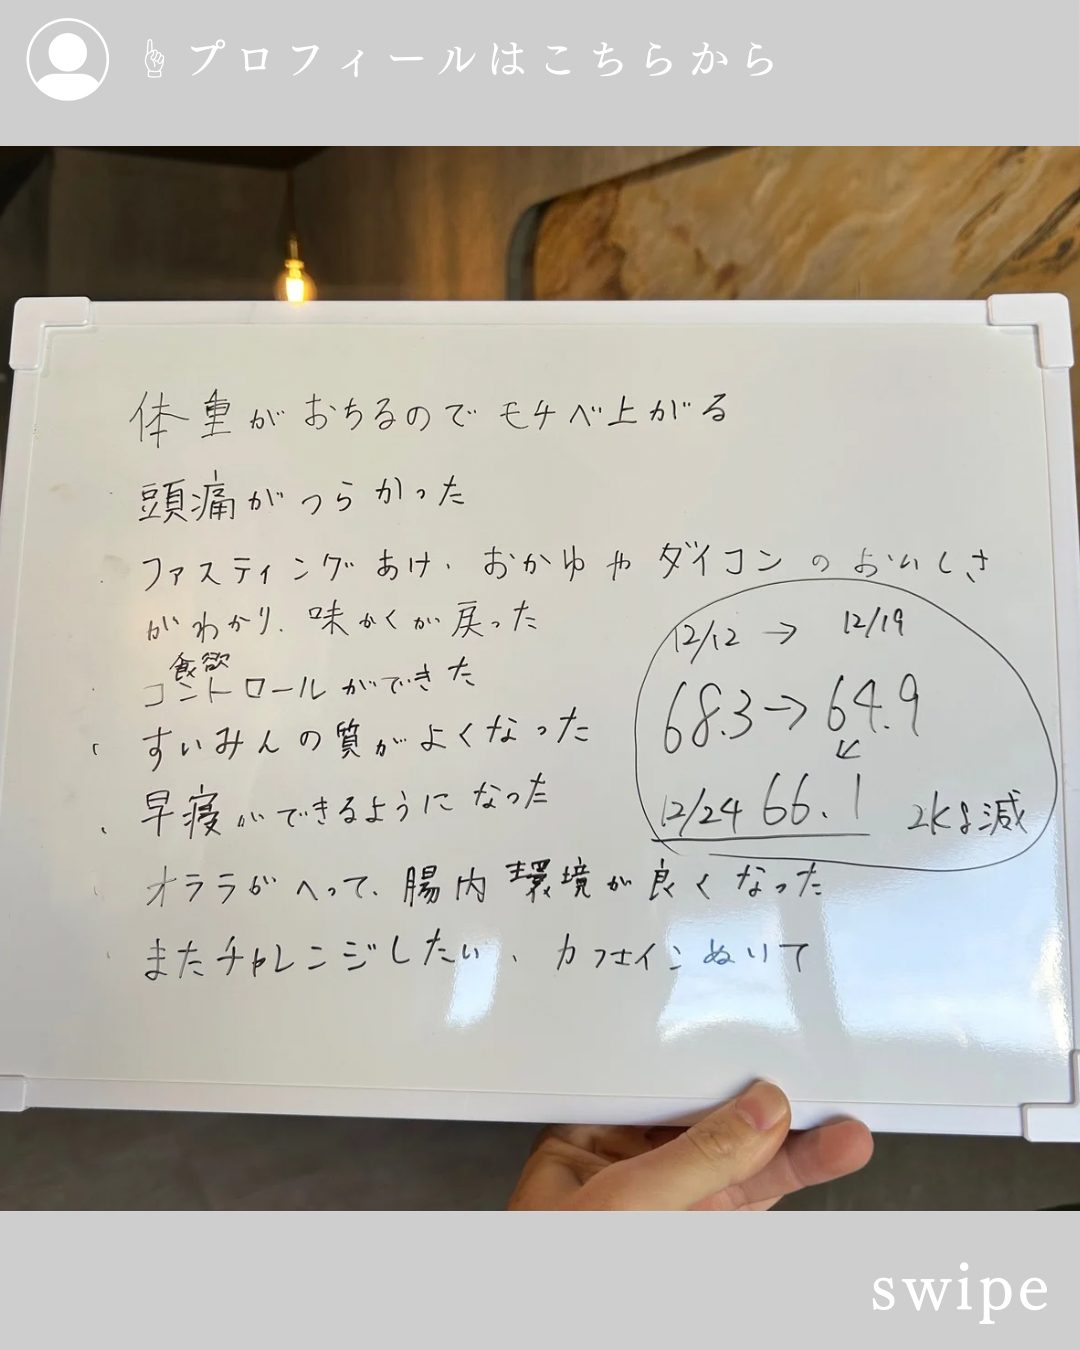 プロフィールはこちらから
体重がおちるのでモチベ上がる
頭痛がつらかった
ファスティングあけ、おかゆやダイコンのおいしさ
がわかり、味かくが戻った
食欲
コントロールができた
すいみんの質がよくなった
早寝ができるようになった
オララがへって、腸内環境が良くなった
またチャレンジしたい、カフェインぬいて
12/12 → 12/19
68.3→64.9
↙
12/24 66.1 2kg減
swipe